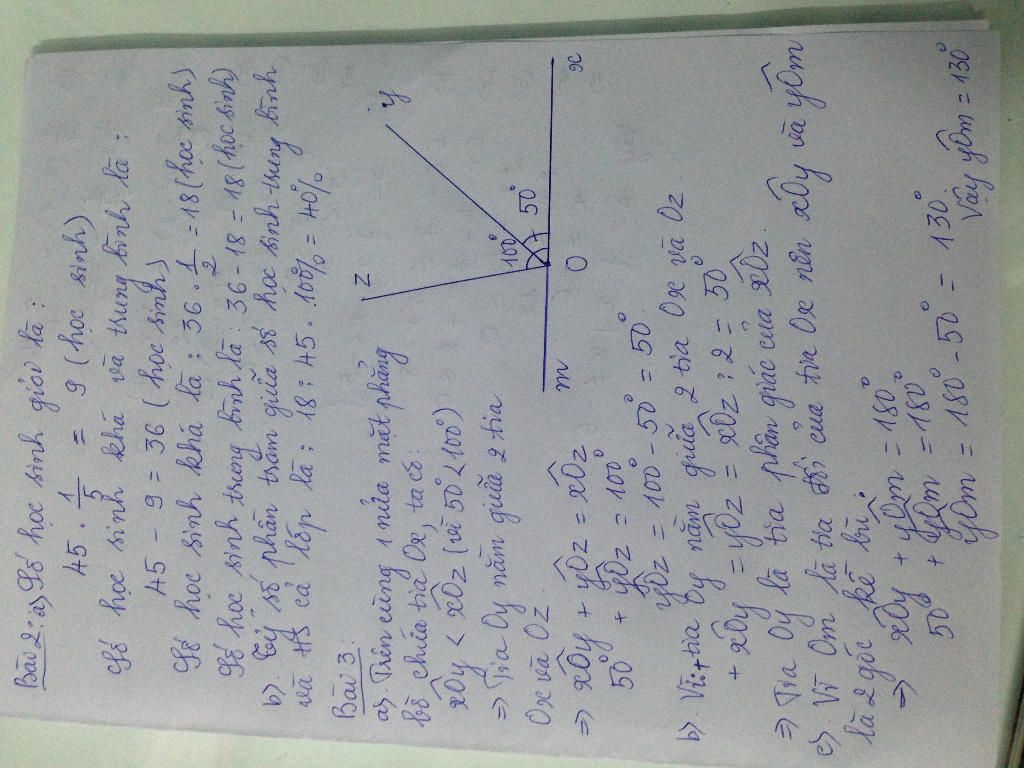 Bài 2: a) Số học sinh giỏi là:
45 . 1/5 = 9 (học sinh)
Số học sinh khá và trung bình là:
45 - 9 = 36 (học sinh)
Số học sinh khá là: 36 . 1/2 = 18 (học sinh)
Số học sinh trung bình là: 36 - 18 = 18 (học sinh)
b) Tỷ số phần trăm giữa số học sinh trung bình
và HS cả lớp là: 18 : 45 . 100% = 40%
Bài 3:
a) Trên cùng 1 nửa mặt phẳng
bờ chứa tia Ox, ta có:
xOy < xOz (vì 50° < 100°)
=> Tia Oy nằm giữa 2 tia
Ox và Oz
=> xOy + yOz = xOz
50° + yOz = 100°
yOz = 100° - 50° = 50°
z
y
100°
50°
m
O
x
b) Vì: + tia Oy nằm giữa 2 tia Ox và Oz
+ xOy = yOz = xOz : 2 = 50°
=> Tia Oy là tia phân giác của xOz
c) Vì Om là tia đối của tia Ox nên xOy và yOm
là 2 góc kề bù.
=> xOy + yOm = 180°
50° + yOm = 180°
yOm = 180° - 50° = 130°
Vậy yOm = 130°